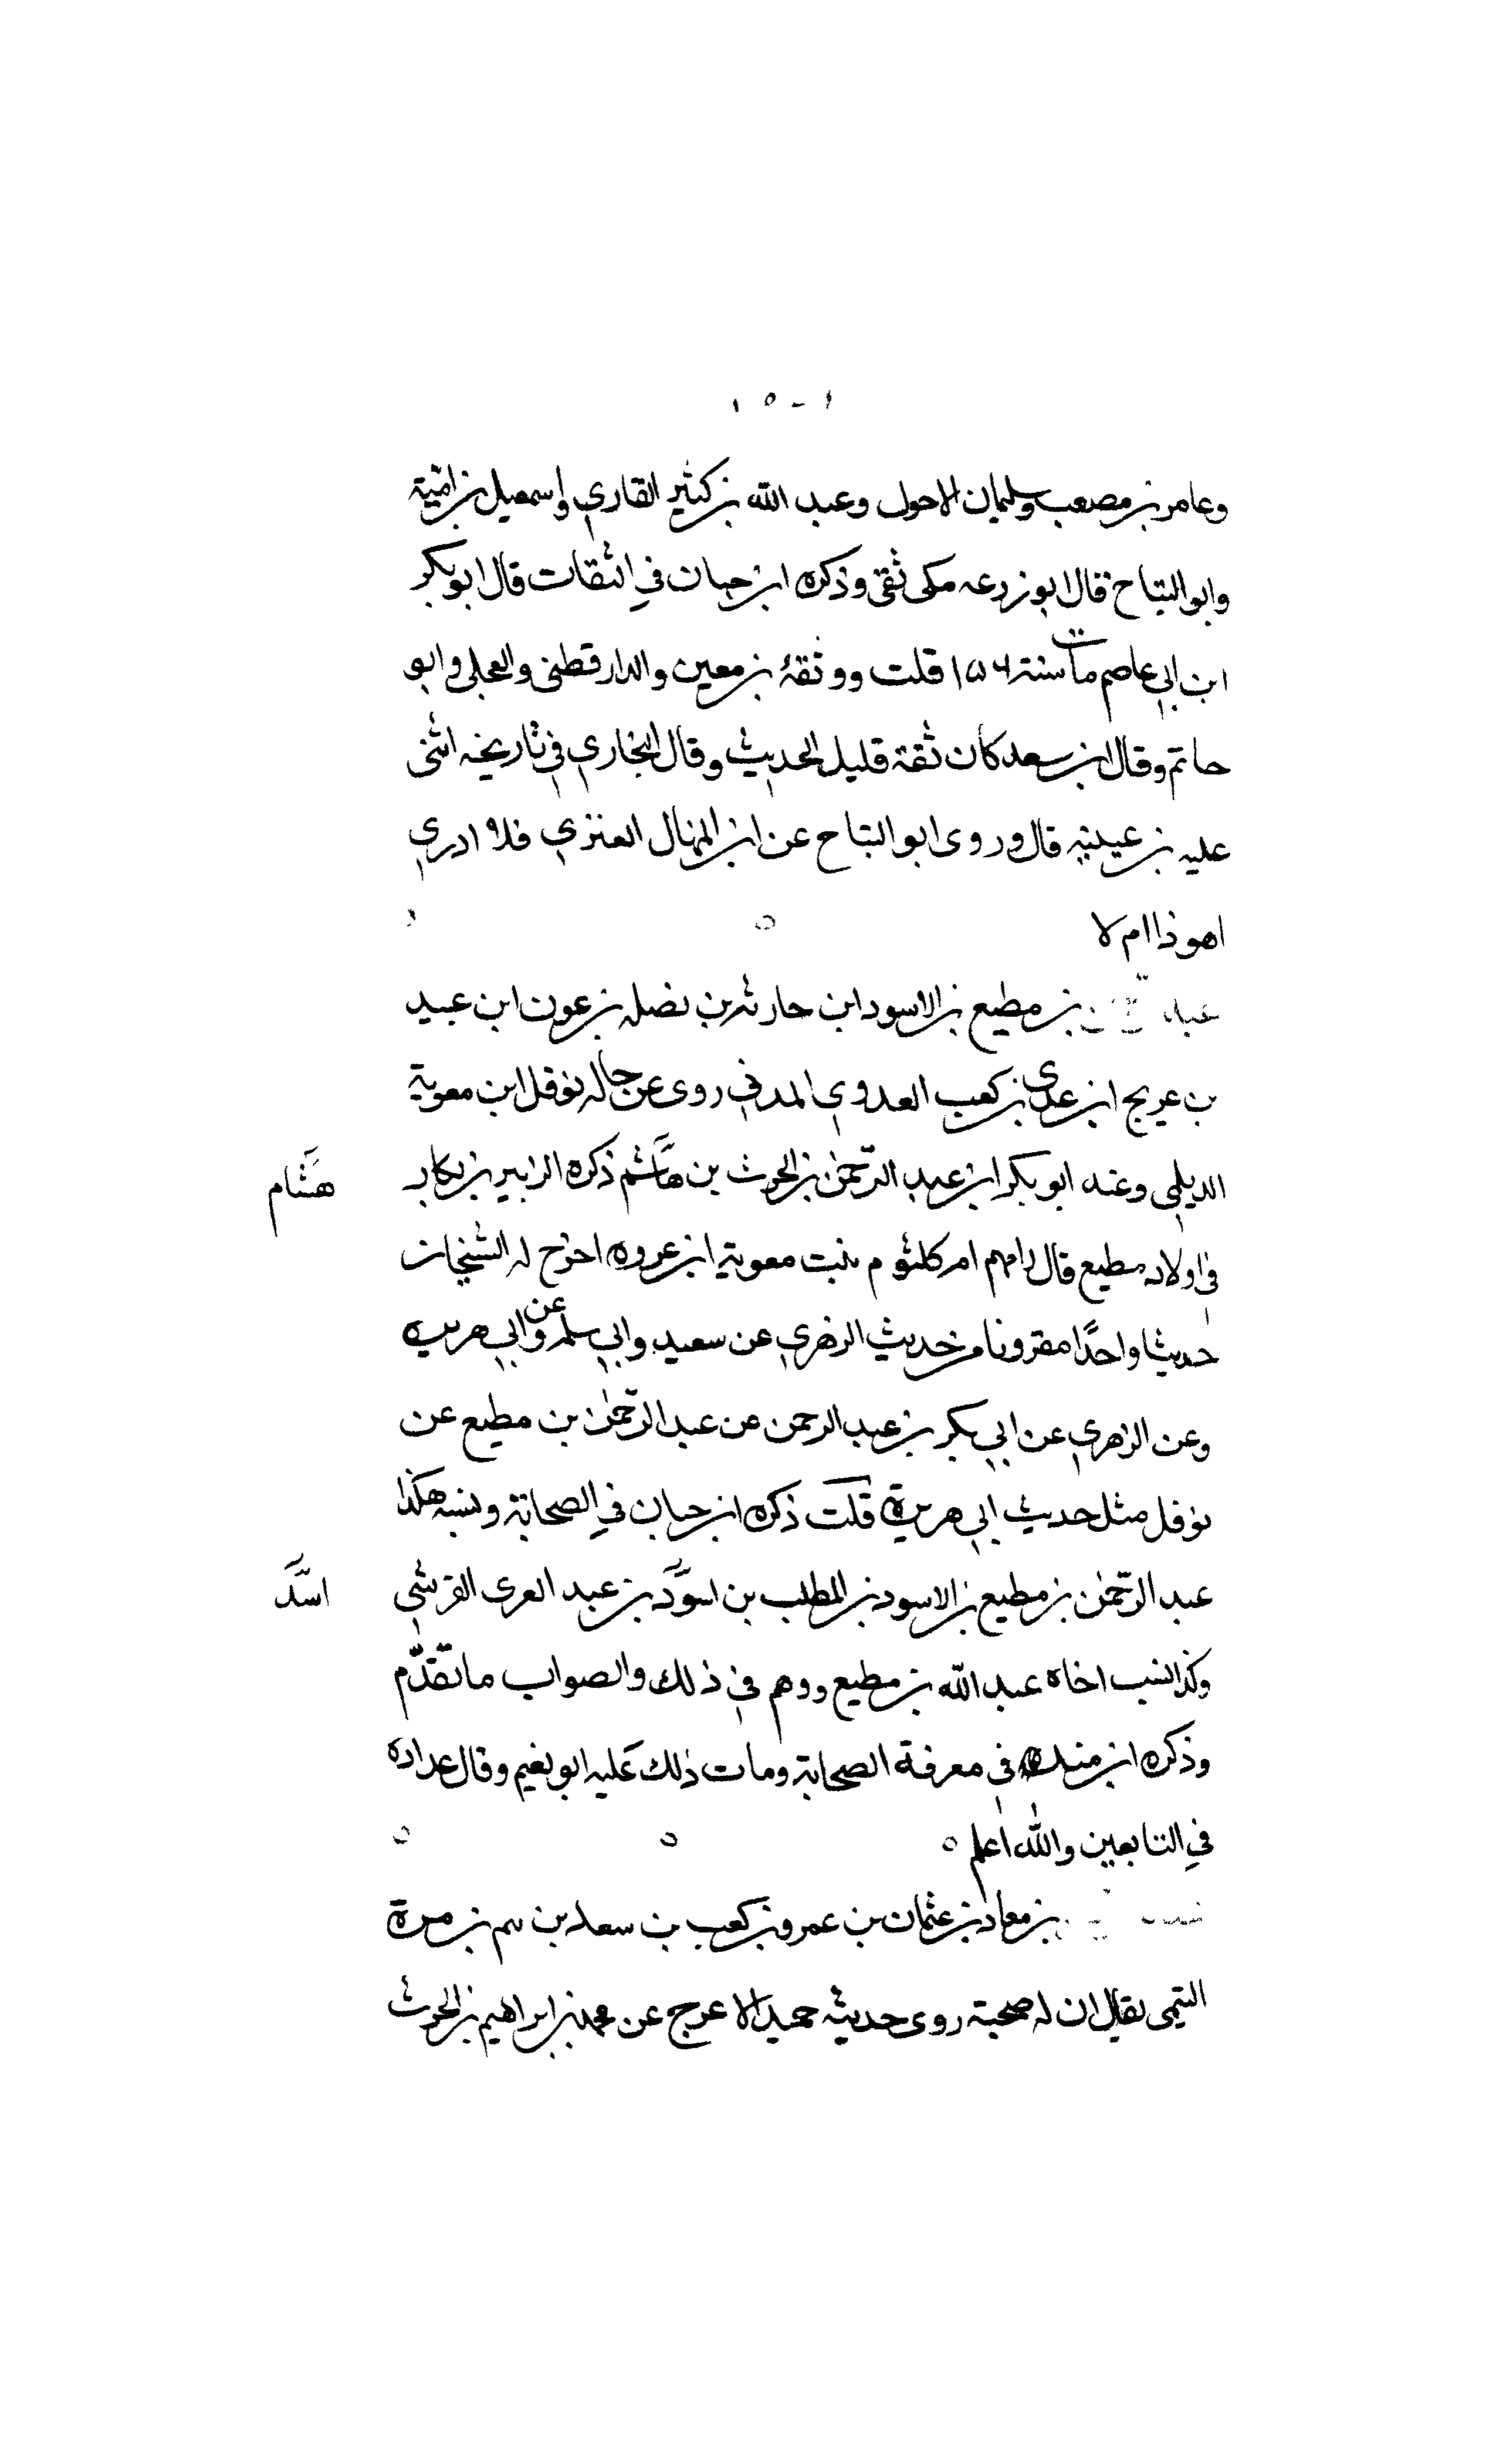 وعامر بن مصعب وسليمان الاحول وعبد الله بن كثير القاري واسمعيل بن امية
وابو التياح قال ابو زرعه مكى ثقى وذكره ابن حبان في الثقات قال ابو بكر
ابن ابي عاصم مات سنة ١٥٦ قلت ووثقه بن معين والدارقطنى والعجلى وابو
حاتم وقال ابن سعد كان ثقة قليل الحديث وقال البخاري في تاريخه اثنى
عليه بن عيينه قال وروى ابو التياح عن ابن المنهال العنزي فلا ادري
اهو ذا ام لا
عبد بن مطيع بن الاسود ابن حارثه بن نضله بن عون ابن عبيد
بن عريج ابن عدى بن كعب العدوي المدني روى عن خاله نوفل ابن معوية
الديلي وعنه ابو بكر ابن عبد الرحمن بن الحرث بن هاشم ذكره الزبير بن بكار
هشام
في اولاد مطيع قال وامهم ام كلثوم بنت معوية ابن عروه اخرج له الشيخان
حديثا واحدًا مقرونا من حديث الزهري عن سعيد وابي سلمه عن وابي هريره
وعن الزهري عن ابي بكر بن عبد الرحمن عن عبد الرحمن بن مطيع عن
نوفل مثل حديث ابي هريرة قلت ذكره ابن حبان في الصحابة ونسبه هكذا
عبد الرحمن بن مطيع بن الاسود بن المطلب بن اسود بن عبد العزى القرشي
اسد
وكذا نسب اخاه عبد الله بن مطيع ووهم في ذلك والصواب ما تقدّم
وذكره ابن منده في معرفة الصحابة ومات ذلك عليه ابو نعيم وقال عداده
في التابعين والله اعلم
بن معاذ بن عثمان بن عمرو بن كعب بن سعد بن تيم بن مرة
التيمى يقال ان له صحبة روى حديثه حميد الاعرج عن محمد بن ابراهيم بن الحرث